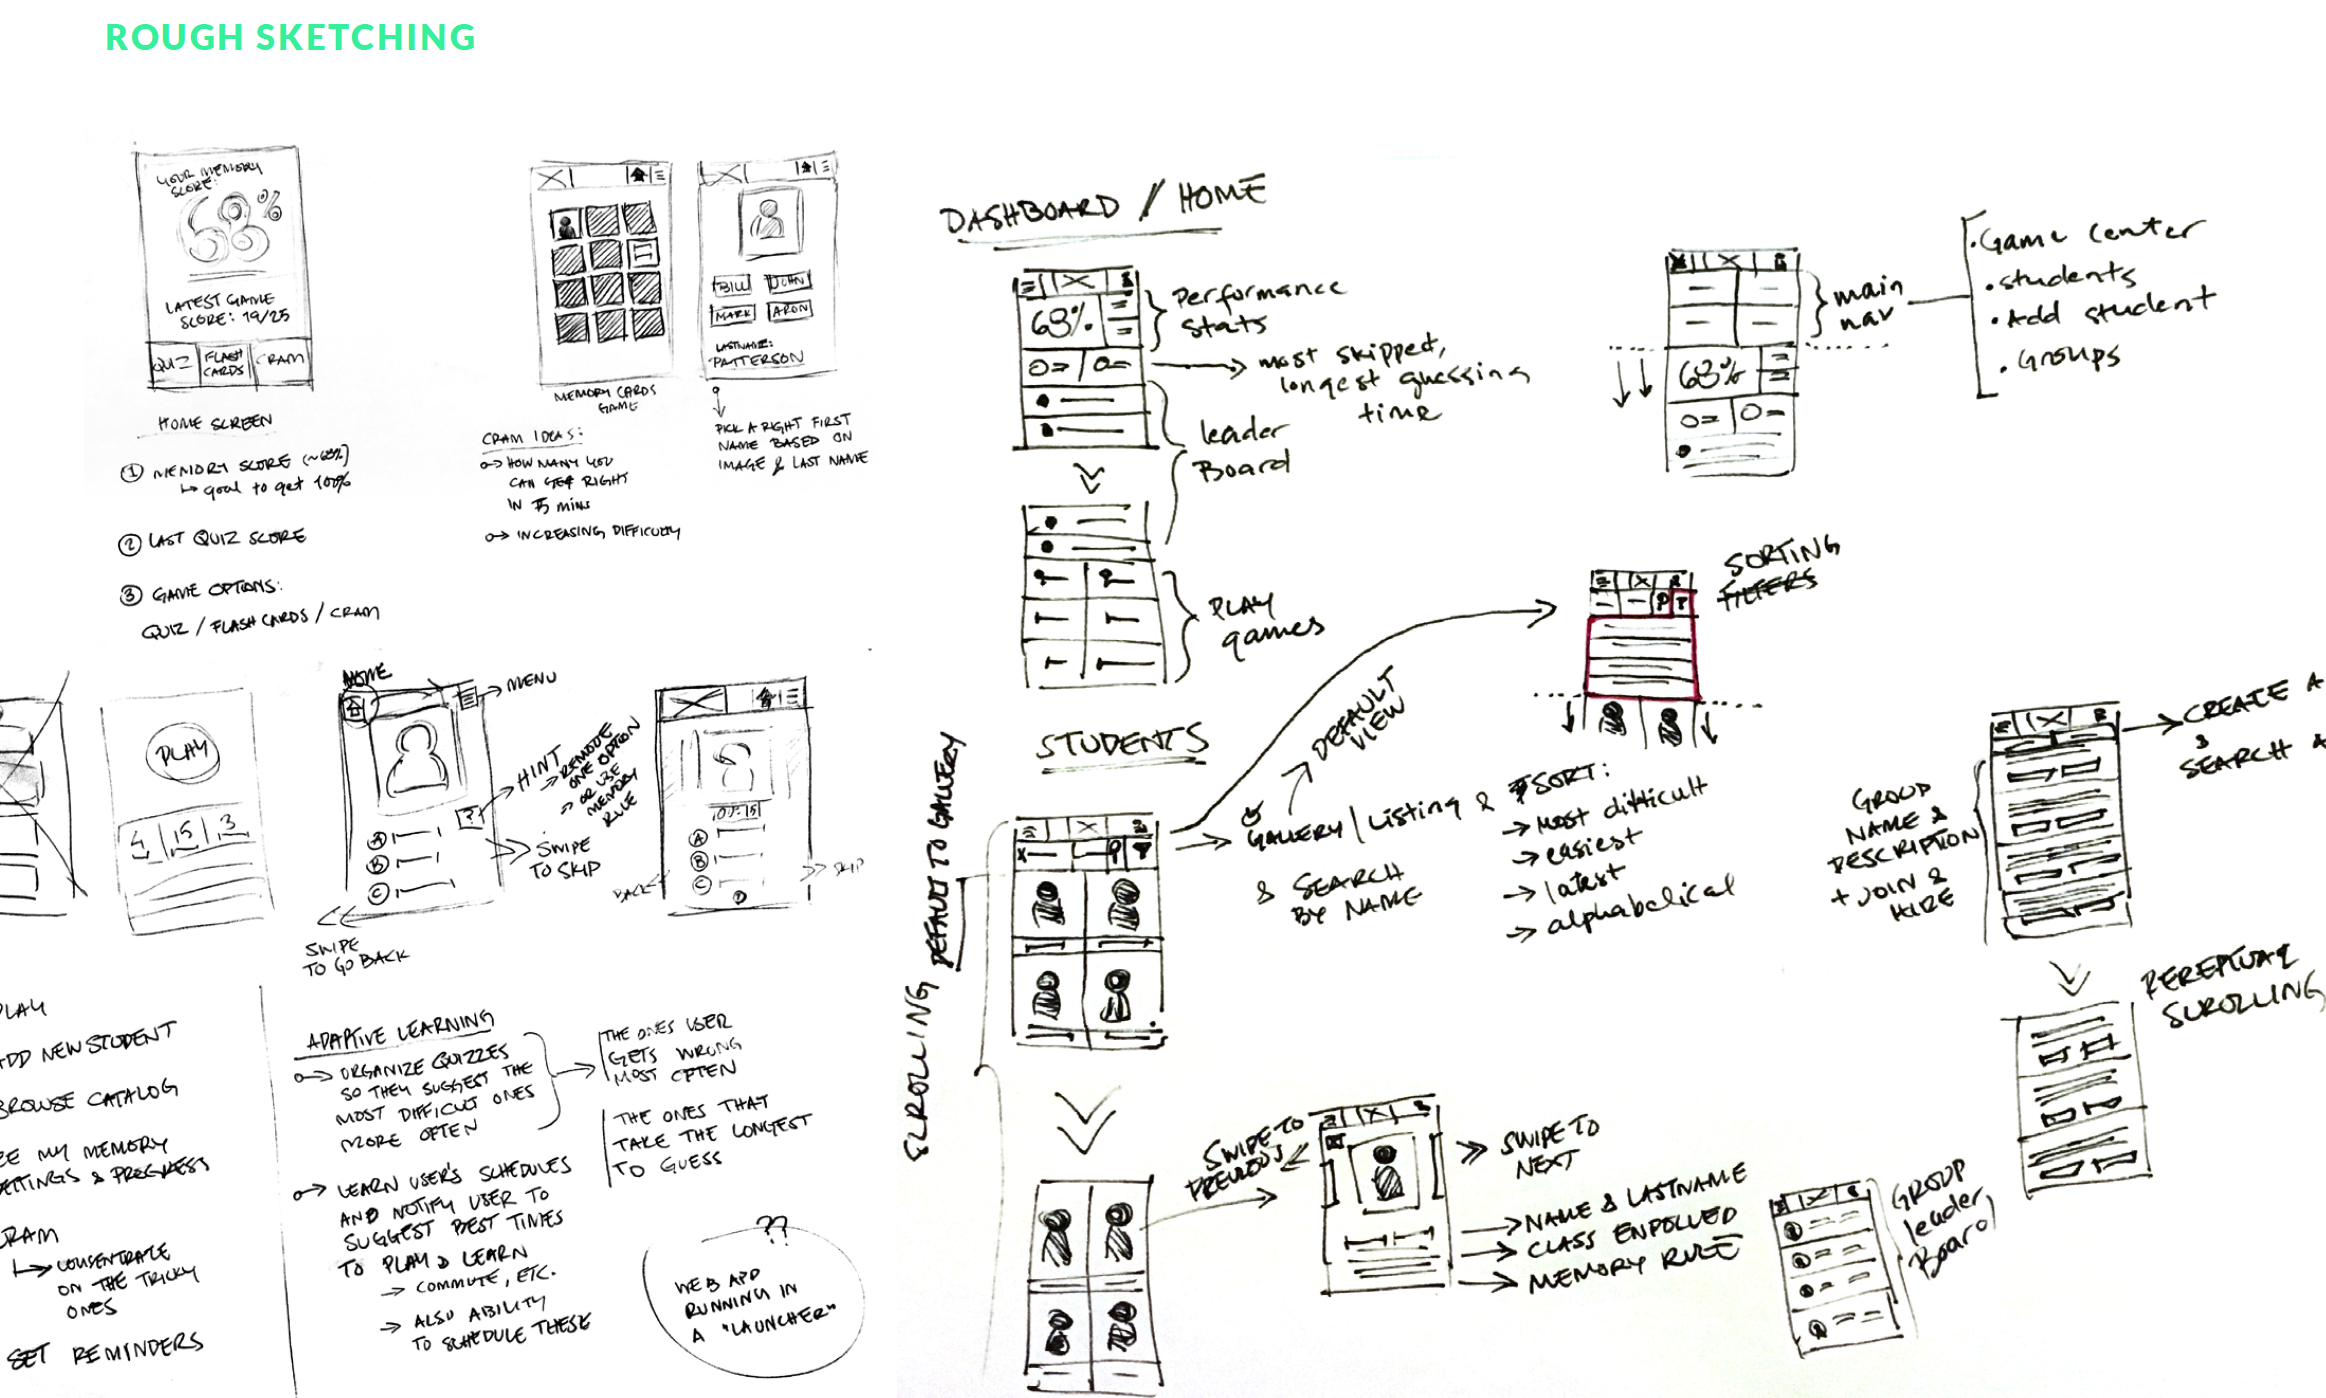 ROUGH SKETCHING
YOUR MEMORY
SCORE:
68%
LATEST GAME
SCORE: 19/25
QUIZ
FLASH
CARDS
CRAM
HOME SCREEN
① MEMORY SCORE (~68%)
↳ goal to get 100%
② LAST QUIZ SCORE
③ GAME OPTIONS:
QUIZ / FLASH CARDS / CRAM
MEMORY CARDS
GAME
CRAM IDEAS:
HOW MANY YOU
CAN GET RIGHT
IN 5 mins
INCREASING DIFFICULTY
BILL
JOHN
MARK
ARON
LASTNAME:
PATTERSON
PICK A RIGHT FIRST
NAME BASED ON
IMAGE & LAST NAME
PLAY
4 | 5 | 3
HOME
MENU
HINT
→ REMOVE
ONE OPTION
→ OR USE
MEMORY
RULE
?
A
B
C
SWIPE
TO SKIP
SWIPE
TO GO BACK
A
B
C
BACK
SKIP
PLAY
ADD NEW STUDENT
BROWSE CATALOG
SEE MY MEMORY
SETTINGS & PROGRESS
CRAM
↳ CONSENTRATE
ON THE TRICKY
ONES
SET REMINDERS
ADAPTIVE LEARNING
ORGANIZE QUIZZES
SO THEY SUGGEST THE
MOST DIFFICULT ONES
MORE OFTEN
THE ONES USER
GETS WRONG
MOST OFTEN
THE ONES THAT
TAKE THE LONGEST
TO GUESS
LEARN USER'S SCHEDULES
AND NOTIFY USER TO
SUGGEST BEST TIMES
TO PLAY & LEARN
→ COMMUTE, ETC.
→ ALSO ABILITY
TO SCHEDULE THESE
??
WEB APP
RUNNING IN
A "LAUNCHER"
DASHBOARD / HOME
68%
Performance
stats
most skipped,
longest guessing
time
leader
Board
PLAY
games
68%
main
nav
• Game center
• students
• Add student
• Groups
STUDENTS
DEFAULT TO GALLERY
SCROLLING
DEFAULT
VIEW
GALLERY / Listing & SORT:
& SEARCH
BY NAME
→ Most difficult
→ easiest
→ latest
→ alphabetical
SORTING
FILTERS
SWIPE TO
PREVIOUS
SWIPE TO
NEXT
NAME & LASTNAME
CLASS ENROLLED
MEMORY RULE
GROUP
NAME &
DESCRIPTION
+ JOIN &
HIRE
CREATE A
&
SEARCH A
PEREPTUAL
SCROLLING
GROUP
leader
Board